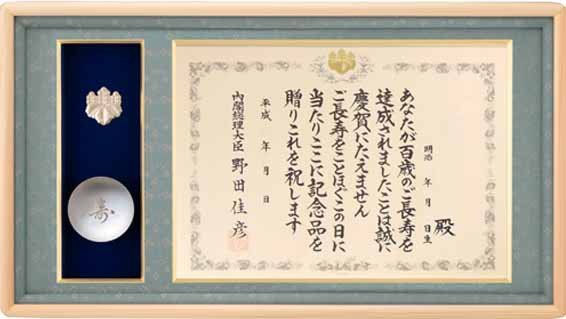 殿
明治　年　月　日生
あなたが百歳のご長寿を
達成されましたことは誠に
慶賀にたえません
ご長寿をことほぐこの日に
当たりここに記念品を
贈りこれを祝します
平成　年　月　日
内閣総理大臣 野田佳彦
寿